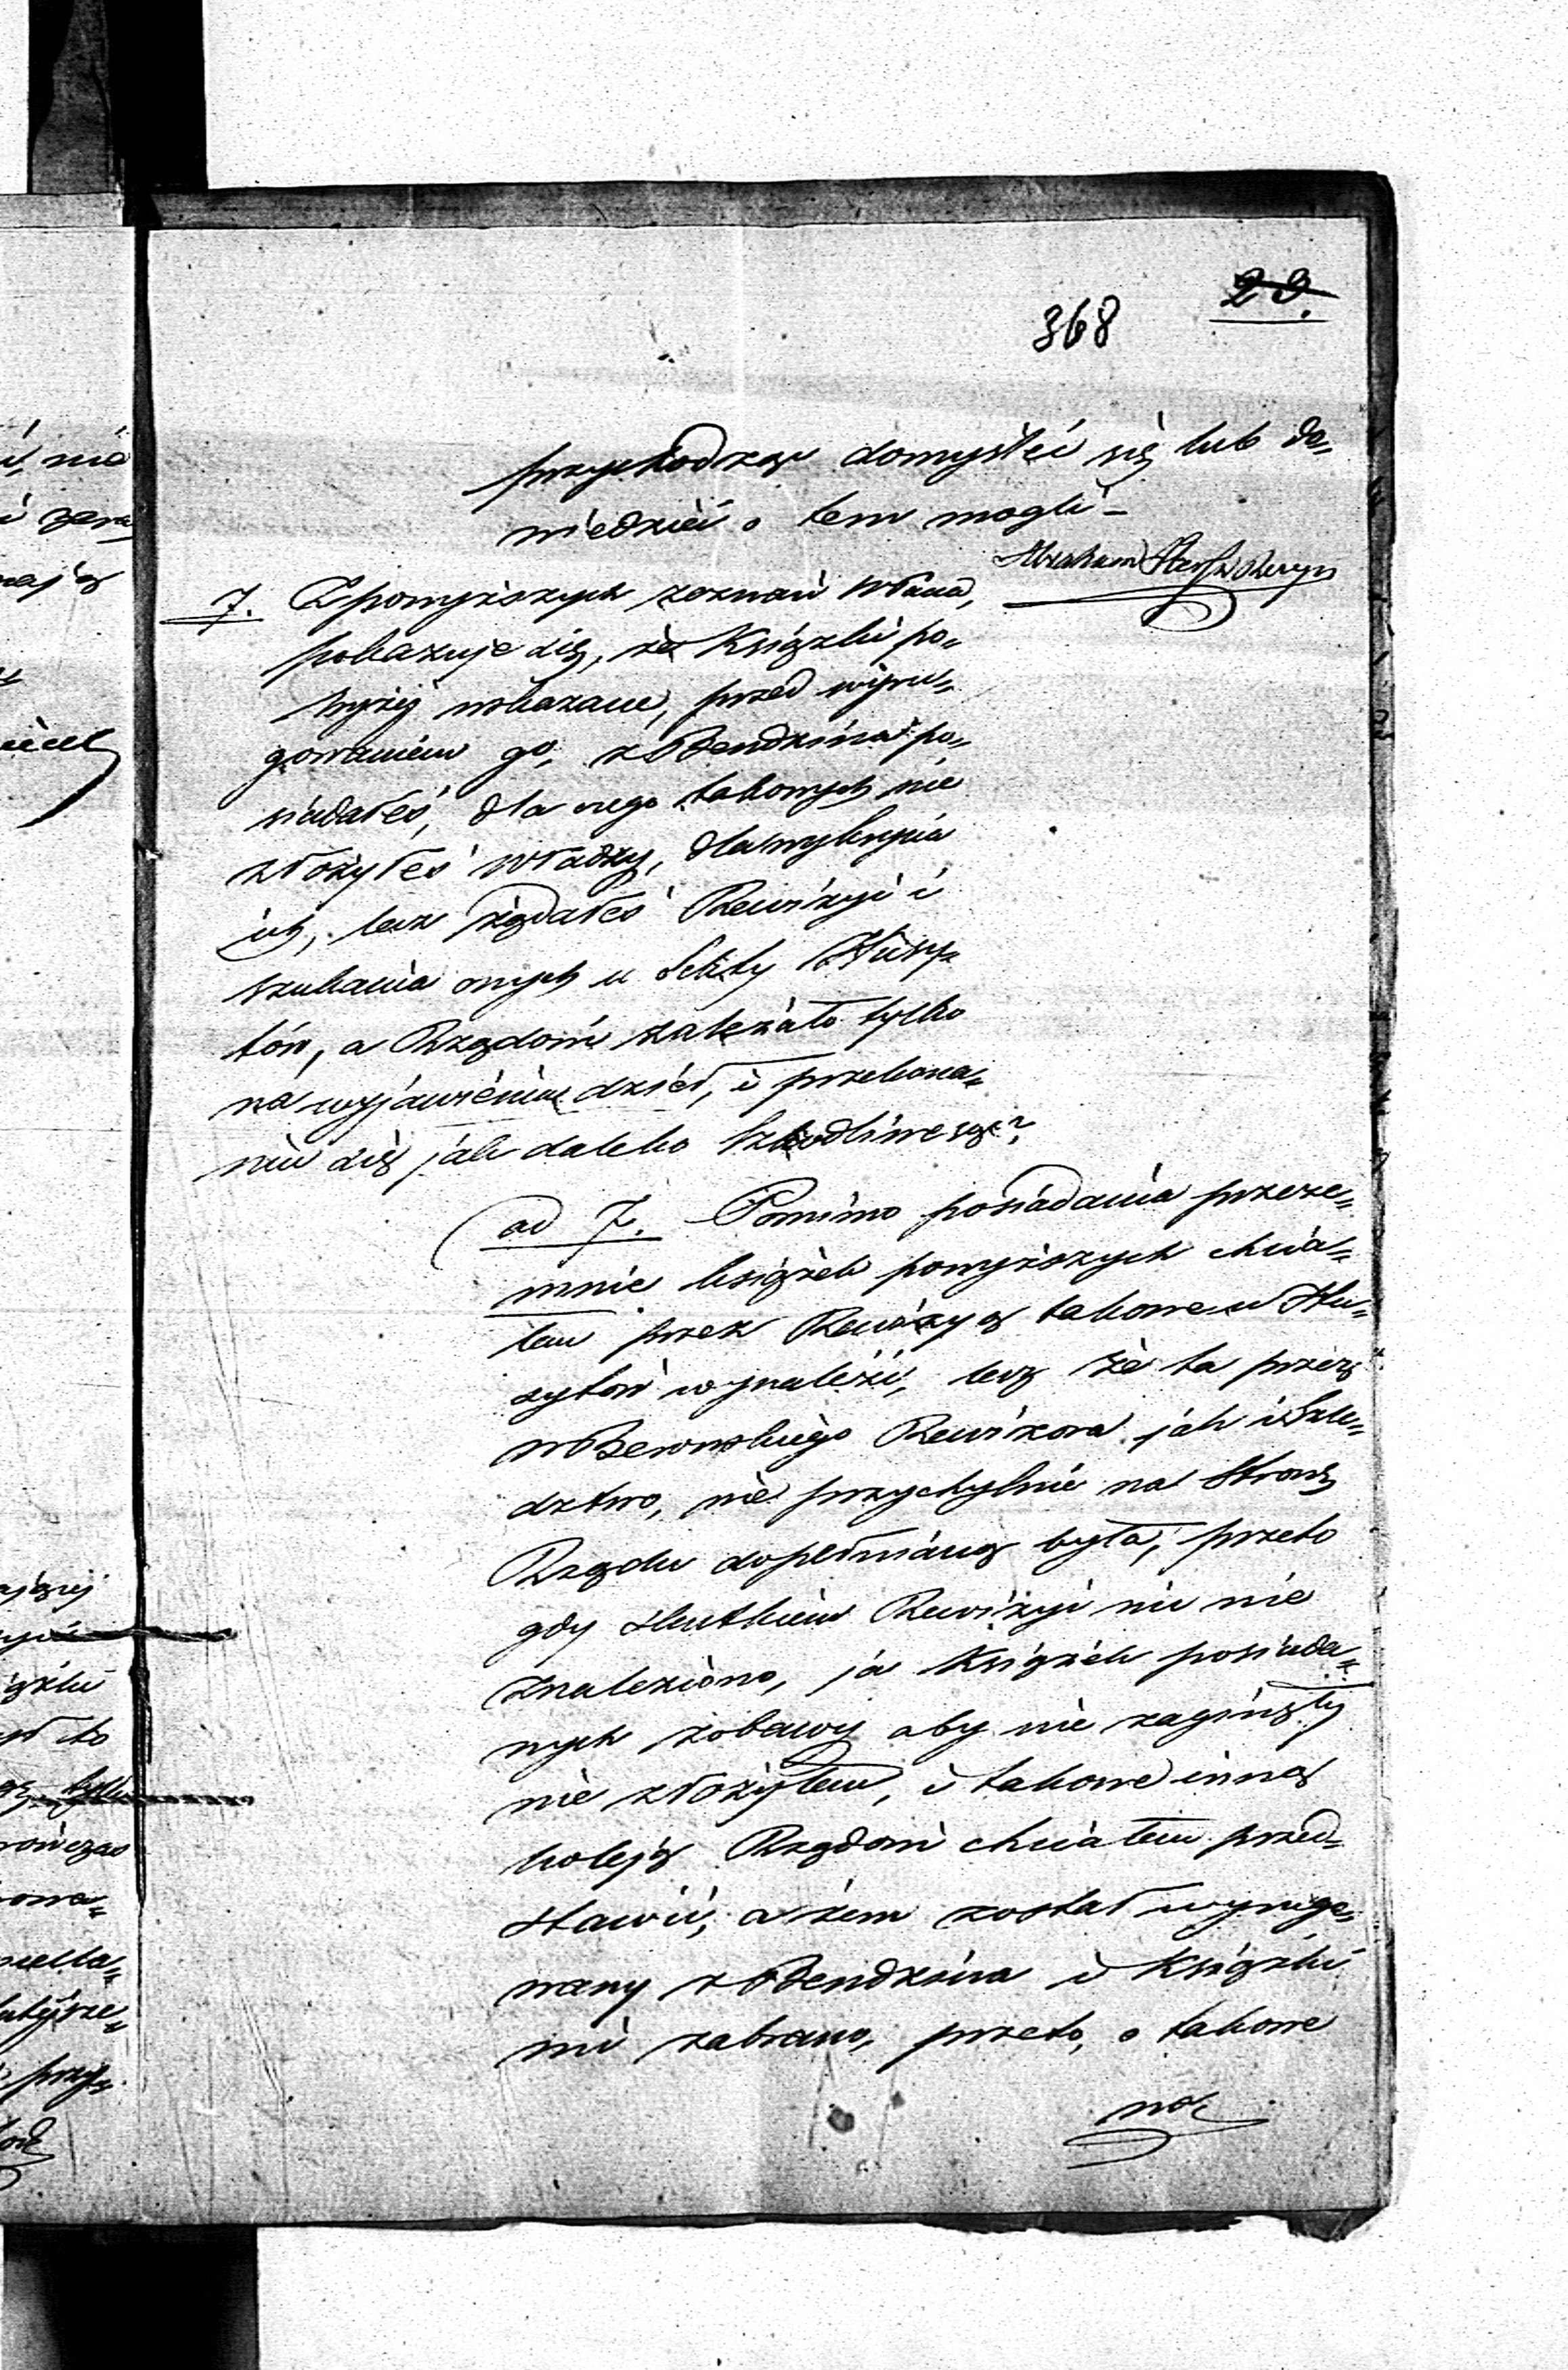 23.
368
przychodząc domyśleć się lub do„
wiedzieć o tem mogli –
Abraham Hersz
7. Z powyższych zeznań
pokazuje się, że Książki po„
wyżej wskazane, przed wyru„
gowaniem go, z Bendzina po„
siadałeś, dla czego takowych nie
złożyłeś Władzy, dla wykrycia
ich, lecz żądałeś Rewizyi i
szukania onych u Sekty Husy„
tów, a Rządowi zależało tylko
na wyjawieniu dzieł, i przekona„
niu się jak daleko Szkodliwe są?
ad 7. Pomimo posiadania przeze„
mnie książek powyższych chcia„
łem przez Rewizyą takowe u Hu„
sytów wynaleźć, lecz że ta przez
Rewizora jak i Śle„
dztwo, nie przychylnie na Stronę
Rządu dopełnianą była, przeto
gdy skutkiem Rewizyi nic nie
znaleziono, ja Książek posiada„
nych z obawy aby nie zaginęły
nie złożyłem, i takowe inną
koleją Rządowi chciałem przed„
stawić, a żem został wyrugo„
wany z Bendzina i Książki
mi zabrano, przeto, o takowe